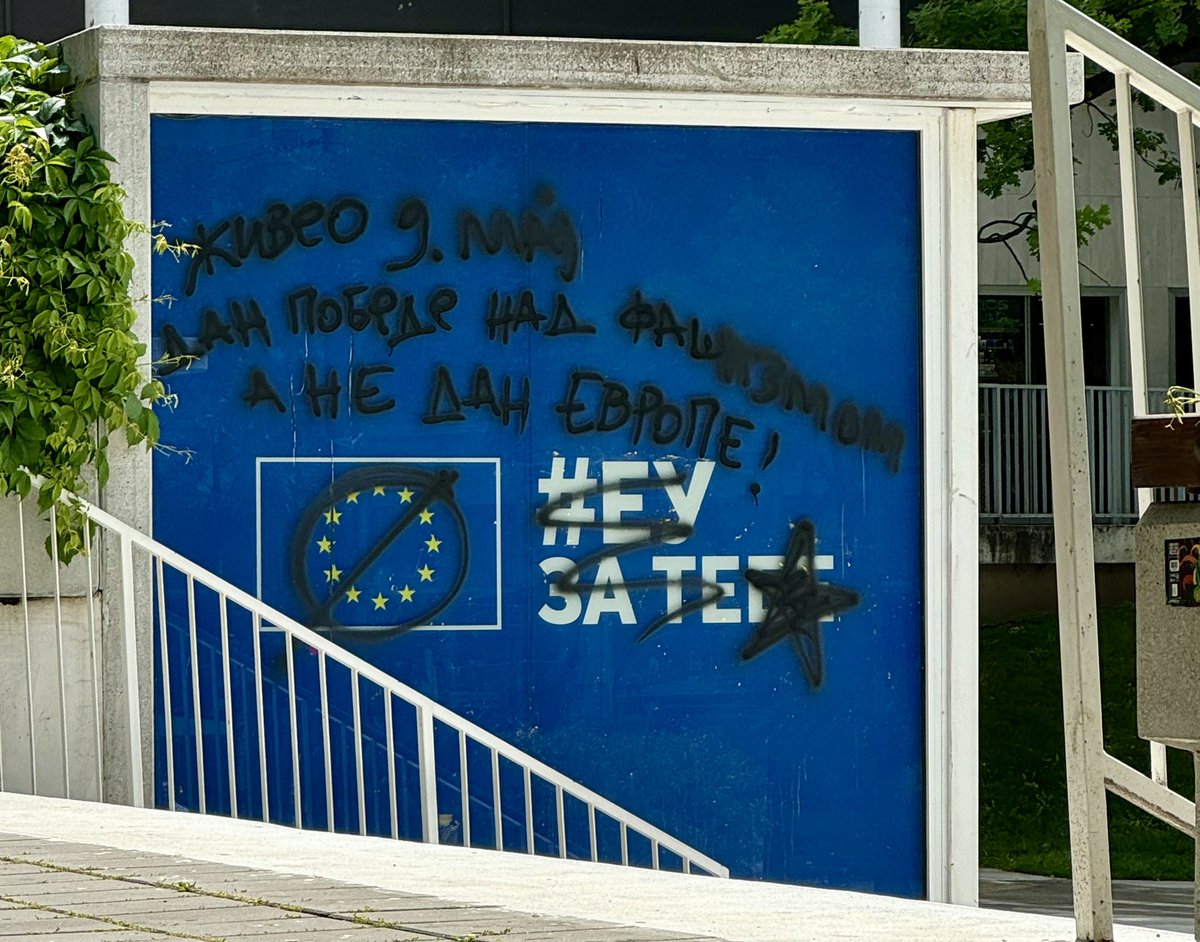 ЖИВЕО 9. МАЈ
ДАН ПОБЕДЕ НАД ФАШИЗМОМ
А НЕ ДАН ЕВРОПЕ!
#ЕУ
ЗА ТЕБЕ